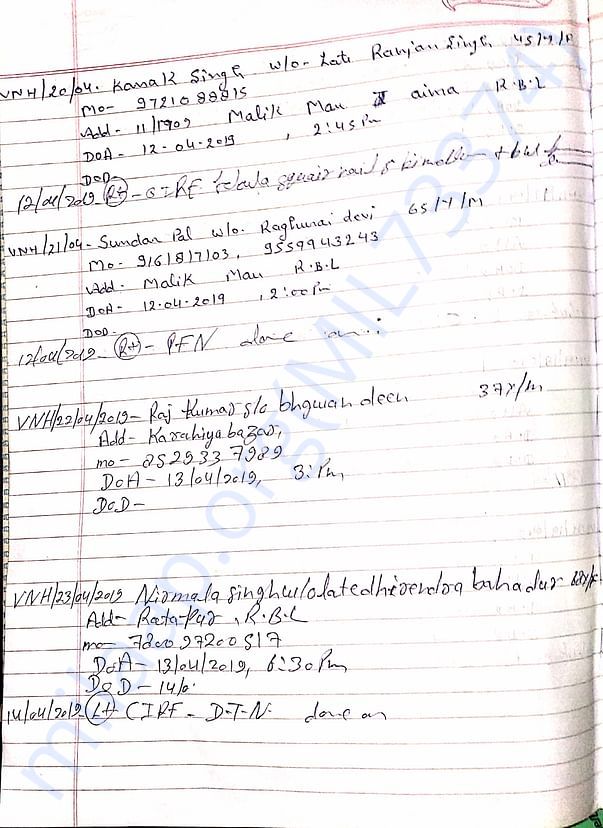 VNH/20/04. Kanak Singh w/o- Late Ranjan Singh 45/Y/
Mo- 9721088815
Add- 11/1909 Malik Mau aima R.B.L
DOA- 12-04-2019, 2:45 Pm
DOD-
12/04/2019 Rt - CIRF
VNH/21/04- Sundar Pal w/o. Raghurai devi 65/Y/M
Mo- 9161817103, 9559943243
Add- Malik Mau R.B.L
DOA- 12.04-2019, 2:00 Pm
DOD-
12/04/2019 Rt - PFN done on
VNH/22/04/2019- Raj Kumar s/o bhgwan deen 37Y/M
Add- Karahiya bazar,
mo- 252933 7989
DOA- 13/04/2019, 3: Pm,
DOD-
VNH/23/04/2019 Nirmala singh w/o late dhirendra bahadur
Add- Rata-Pur, R.B.L
mo- 7200 97200 517
DOA- 13/04/2019, 6:30 Pm,
DOD- 14/0
14/04/2019- Lt CIRF - D-T-N. done on
milaap.org(MIL733747